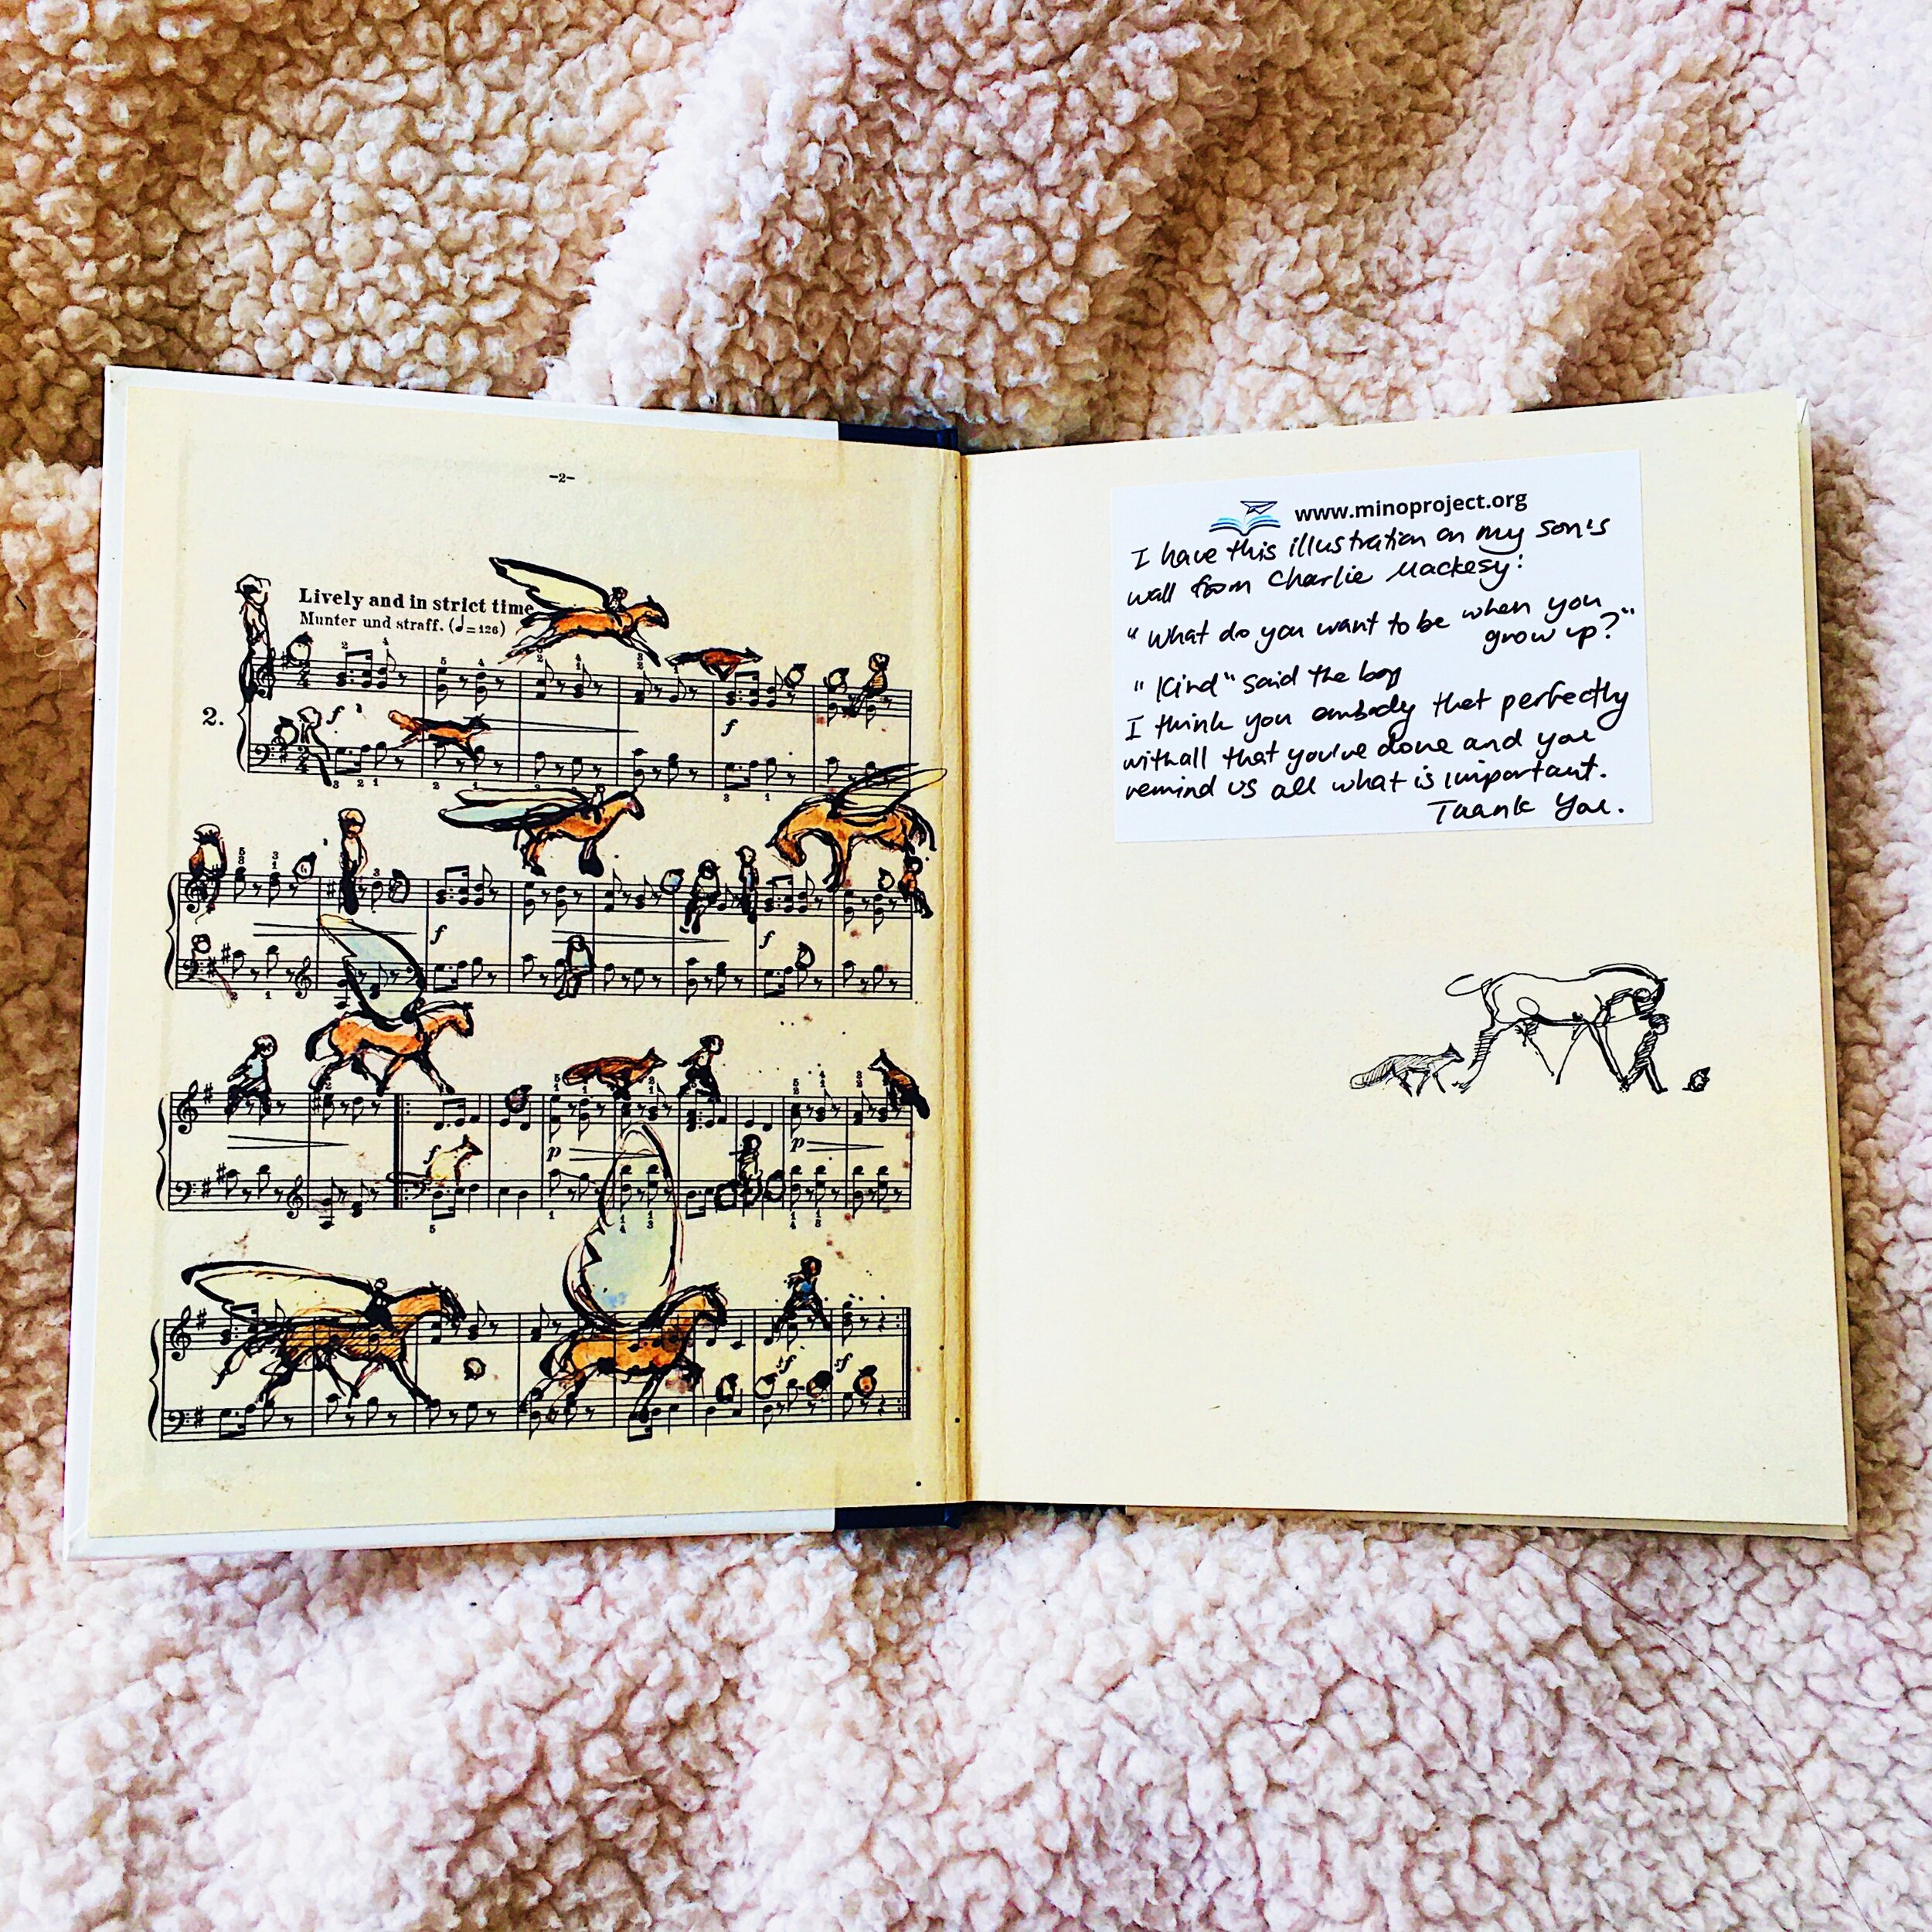 -2-
Lively and in strict time
Munter und straff. (♩=126)
2.
f
f
f
f
f
p
p
sf
sf
www.minoproject.org
I have this illustration on my son's
wall from Charlie Mackesy:
"What do you want to be when you
grow up?"
"Kind" said the boy
I think you embody that perfectly
with all that you've done and you
remind us all what is important.
Thank you.